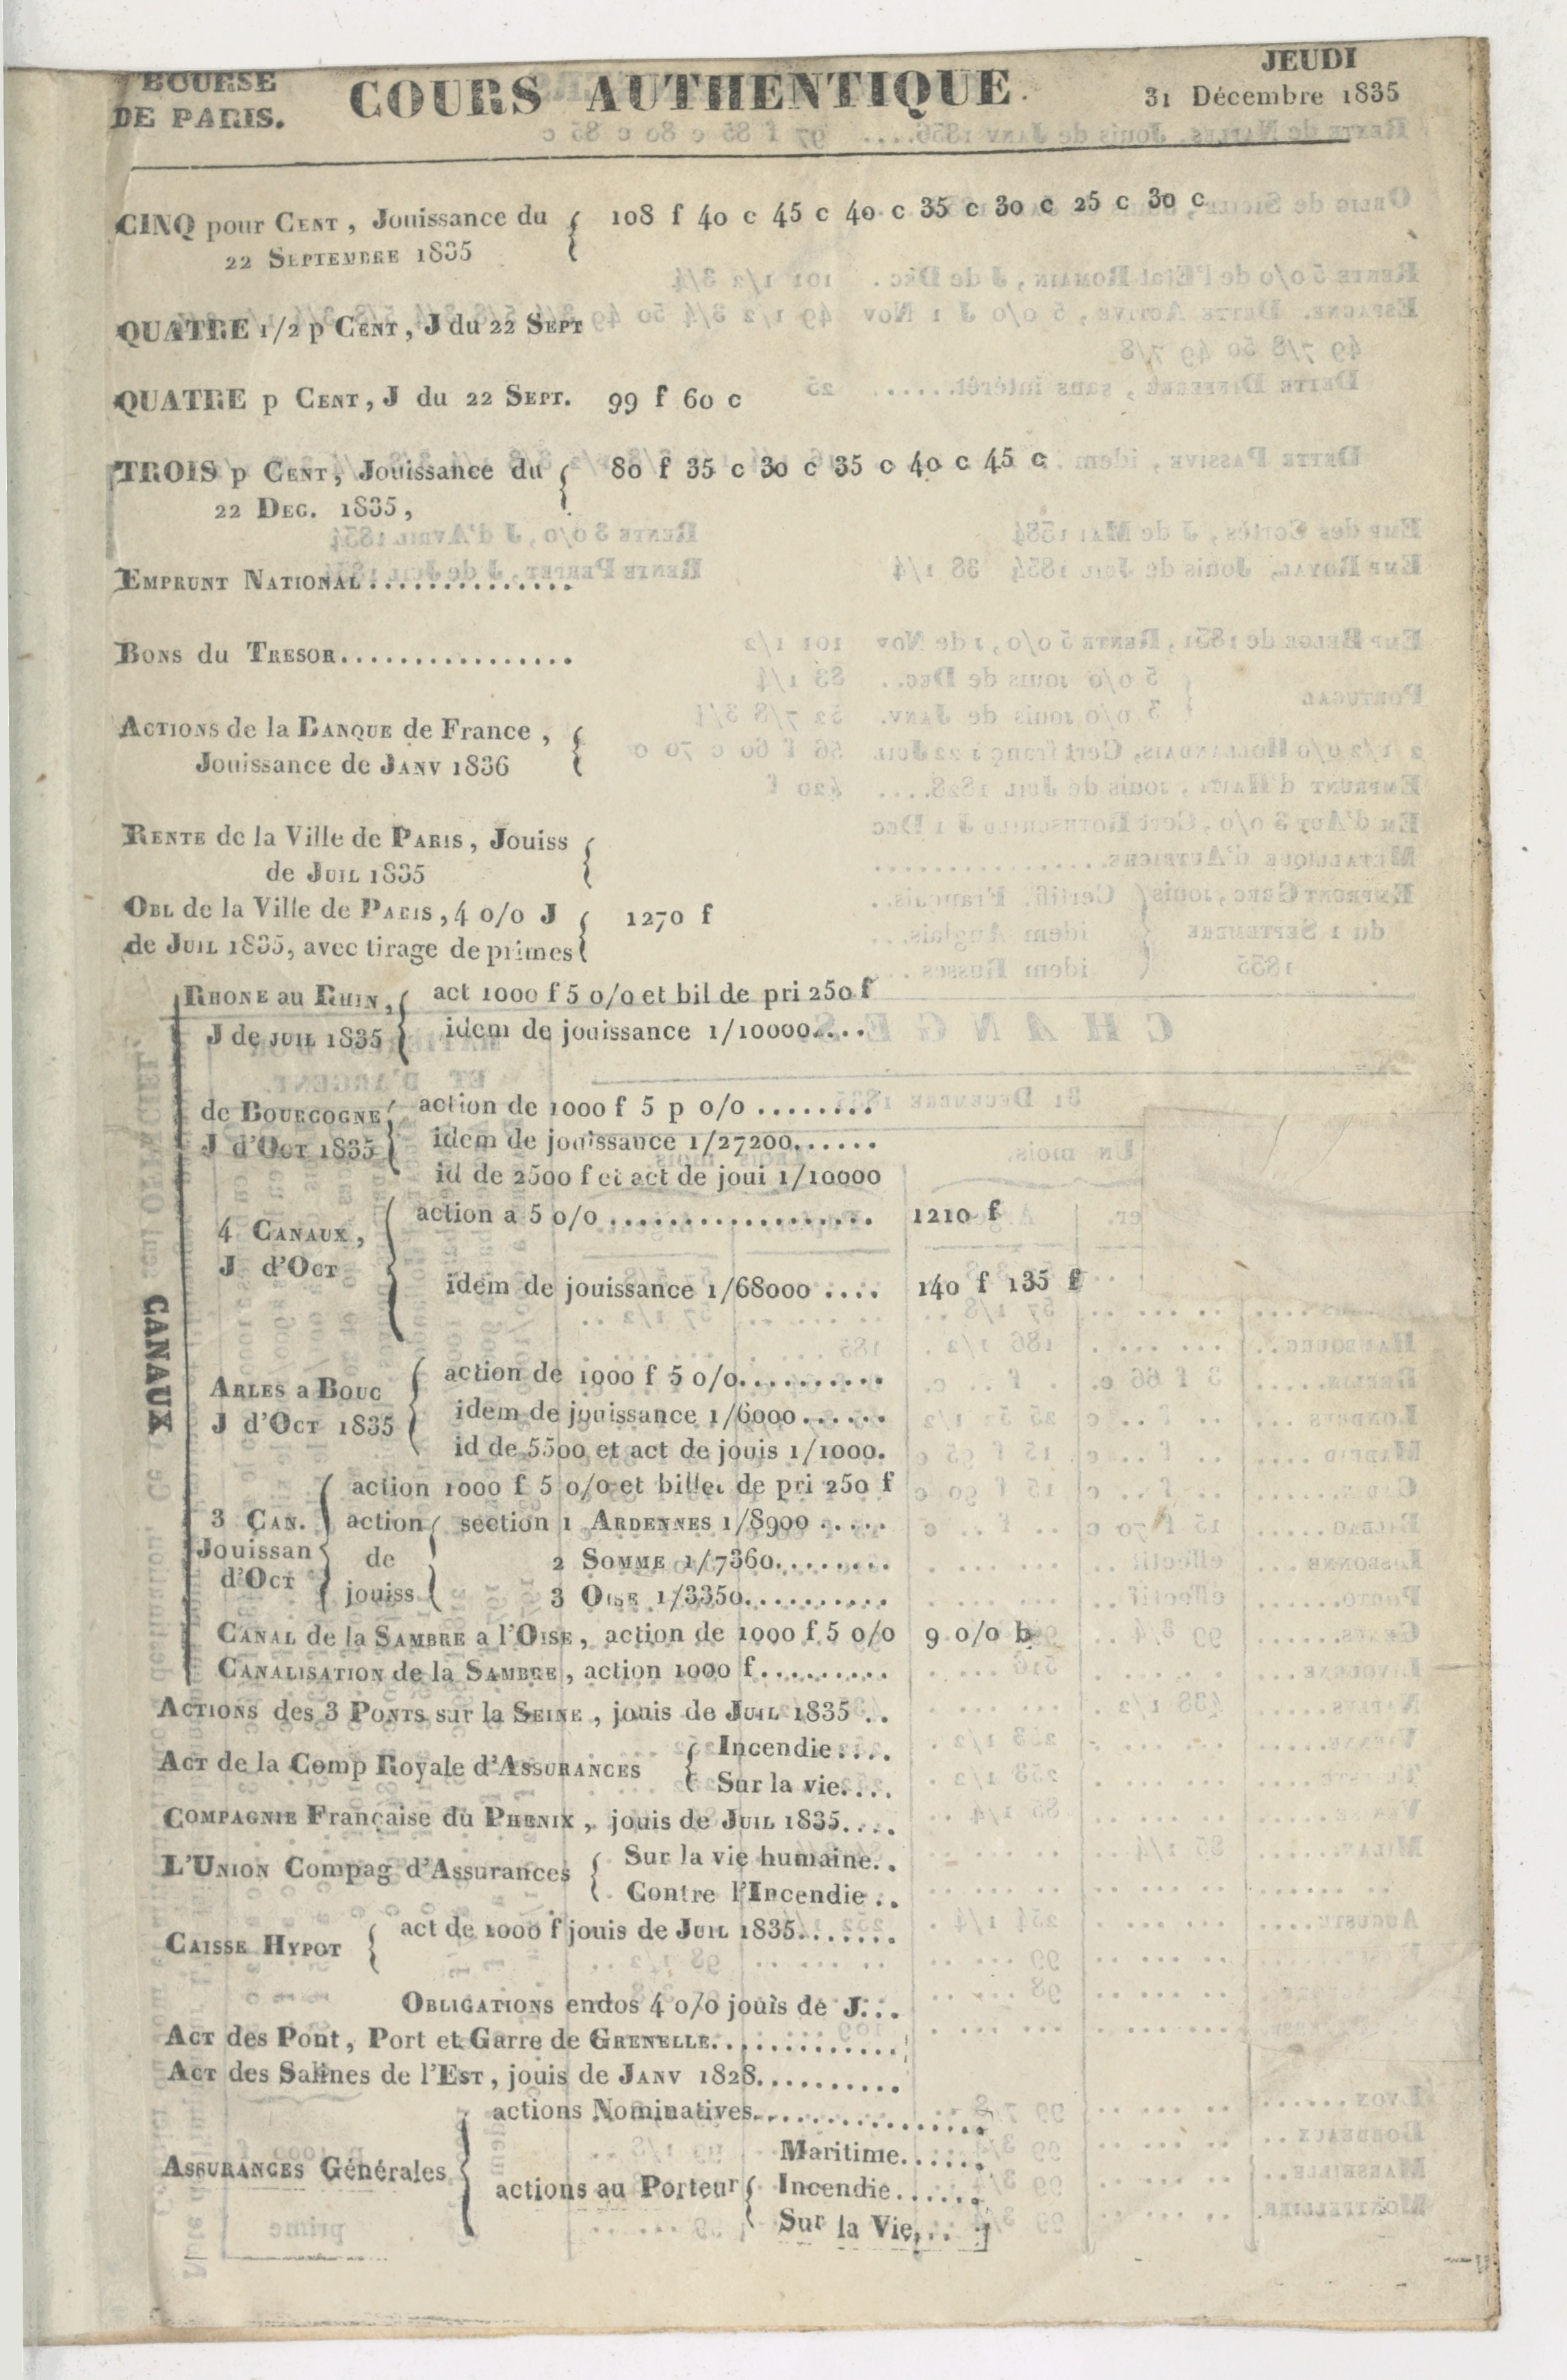 BOURSE
DE PARIS.
COURS AUTHENTIQUE.
JEUDI
31 Décembre 1835
CINQ pour CENT, Jouissance du { 108 f 40 c 45 c 40 c 35 c 30 c 25 c 30 c
22 SEPTEMBRE 1835
QUATRE 1/2 p CENT, J du 22 SEPT
QUATRE p CENT, J du 22 SEPT. 99 f 60 c
TROIS p CENT, Jouissance du { 80 f 35 c 30 c 35 c 40 c 45 c
22 DEC. 1835,
EMPRUNT NATIONAL..............
BONS du TRESOR................
ACTIONS de la BANQUE de France, {
Jouissance de JANV 1836
RENTE de la Ville de PARIS, Jouiss {
de JUIL 1835
OBL de la Ville de PARIS, 4 o/o J { 1270 f
de JUIL 1835, avec tirage de primes
CANAUX
RHONE au RHIN, { act 1000 f 5 o/o et bil de pri 250 f
J de JUIL 1835 idem de jouissance 1/10000....
de BOURGOGNE, { action de 1000 f 5 p o/o ........
J d'OCT 1835 idem de jouissance 1/27200......
id de 2500 f et act de joui 1/10000
4 CANAUX, { action a 5 o/o ................... 1210 f
J d'OCT
idem de jouissance 1/68000 .... 140 f 135 f
ARLES a BOUC { action de 1000 f 5 o/o..........
J d'OCT 1835 idem de jouissance 1/6000......
id de 5500 et act de jouis 1/1000.
action 1000 f 5 o/o et billet de pri 250 f
3 CAN. { action { section 1 ARDENNES 1/8900 .....
Jouissan de 2 SOMME 1/7360........
d'OCT jouiss 3 OISE 1/3350..........
CANAL de la SAMBRE a l'OISE, action de 1000 f 5 o/o 9 o/o b
CANALISATION de la SAMBRE, action 1000 f..........
ACTIONS des 3 PONTS sur la SEINE, jouis de JUIL 1835 ..
ACT de la Comp Royale d'ASSURANCES { Incendie....
Sur la vie....
COMPAGNIE Française du PHENIX, jouis de JUIL 1835....
L'UNION Compag d'Assurances { Sur la vie humaine..
Contre l'Incendie ..
CAISSE HYPOT { act de 1000 f jouis de JUIL 1835.......
OBLIGATIONS endos 4 o/o jouis de J...
ACT des Pont, Port et Garre de GRENELLE..............
ACT des Salines de l'EST, jouis de JANV 1828..........
actions Nominatives..................
ASSURANCES Générales { Maritime......
actions au Porteur { Incendie......
Sur la Vie...